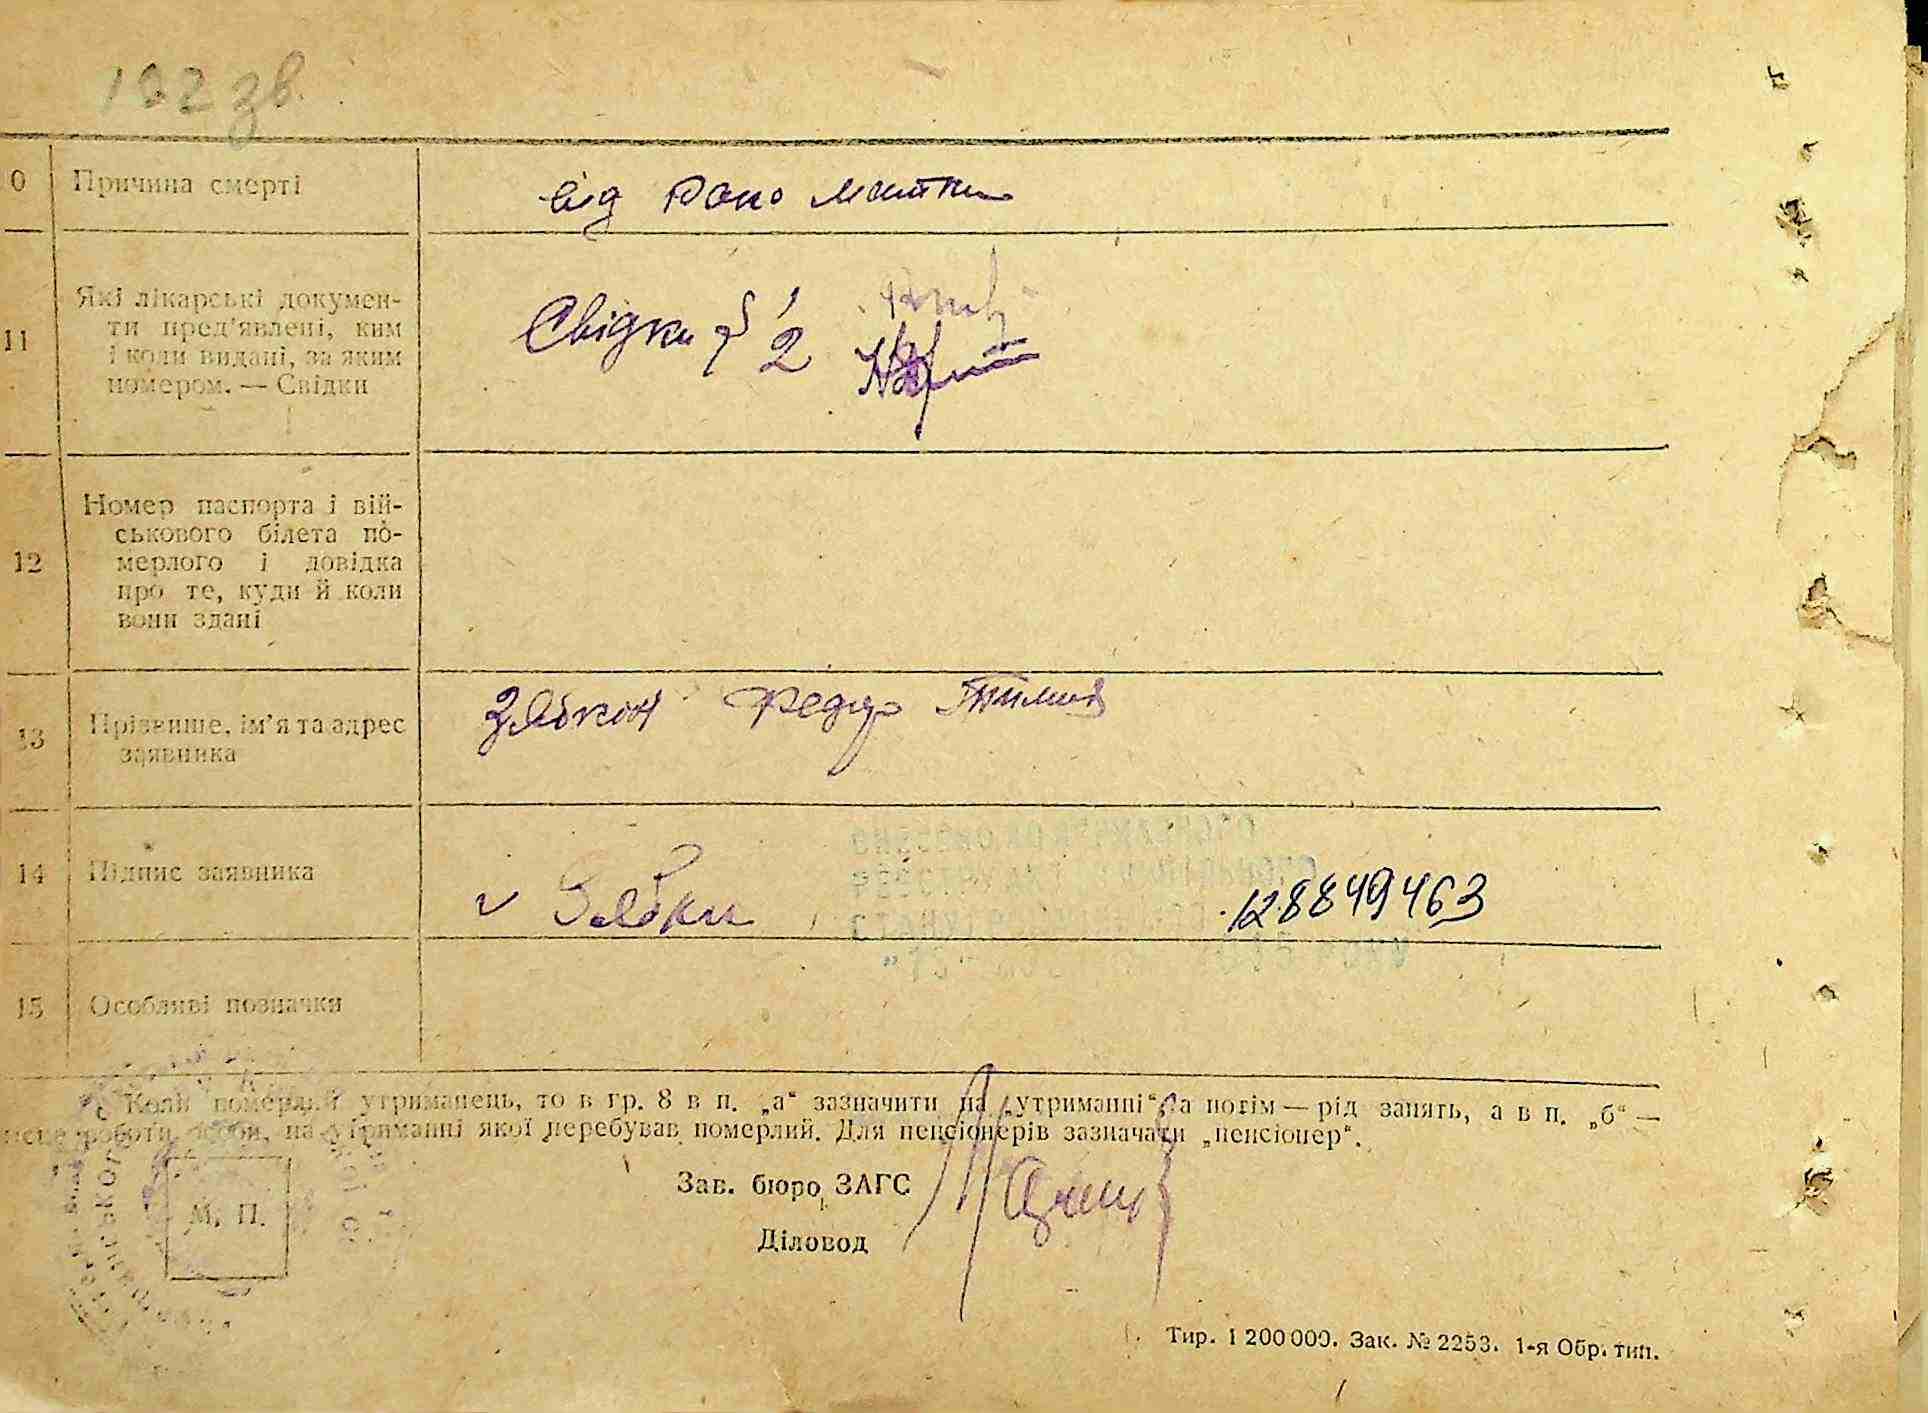 192 зв.
0 Причина смерті від рано матки
11 Які лікарські докумен-
ти пред'явлені, ким
і коли видані, за яким
номером. — Свідки
Свідки 1
2
12 Номер паспорта і вій-
ськового білета по-
мерлого і довідка
про те, куди й коли
вони здані
13 Прізвище, ім'я та адрес
заявника
Федор
14 Підпис заявника
128849463
15 Особливі позначки
Коли померлий утриманець, то в гр. 8 в п. „а“ зазначити на „утриманні“ а потім — рід занять, а в п. „б“ —
роботи особи, на утриманні якої перебував померлий. Для пенсіонерів зазначати „пенсіонер“.
Зав. бюро ЗАГС
М. П.
Діловод
Тир. 1 200 000. Зак. № 2253. 1-я Обр. тип.